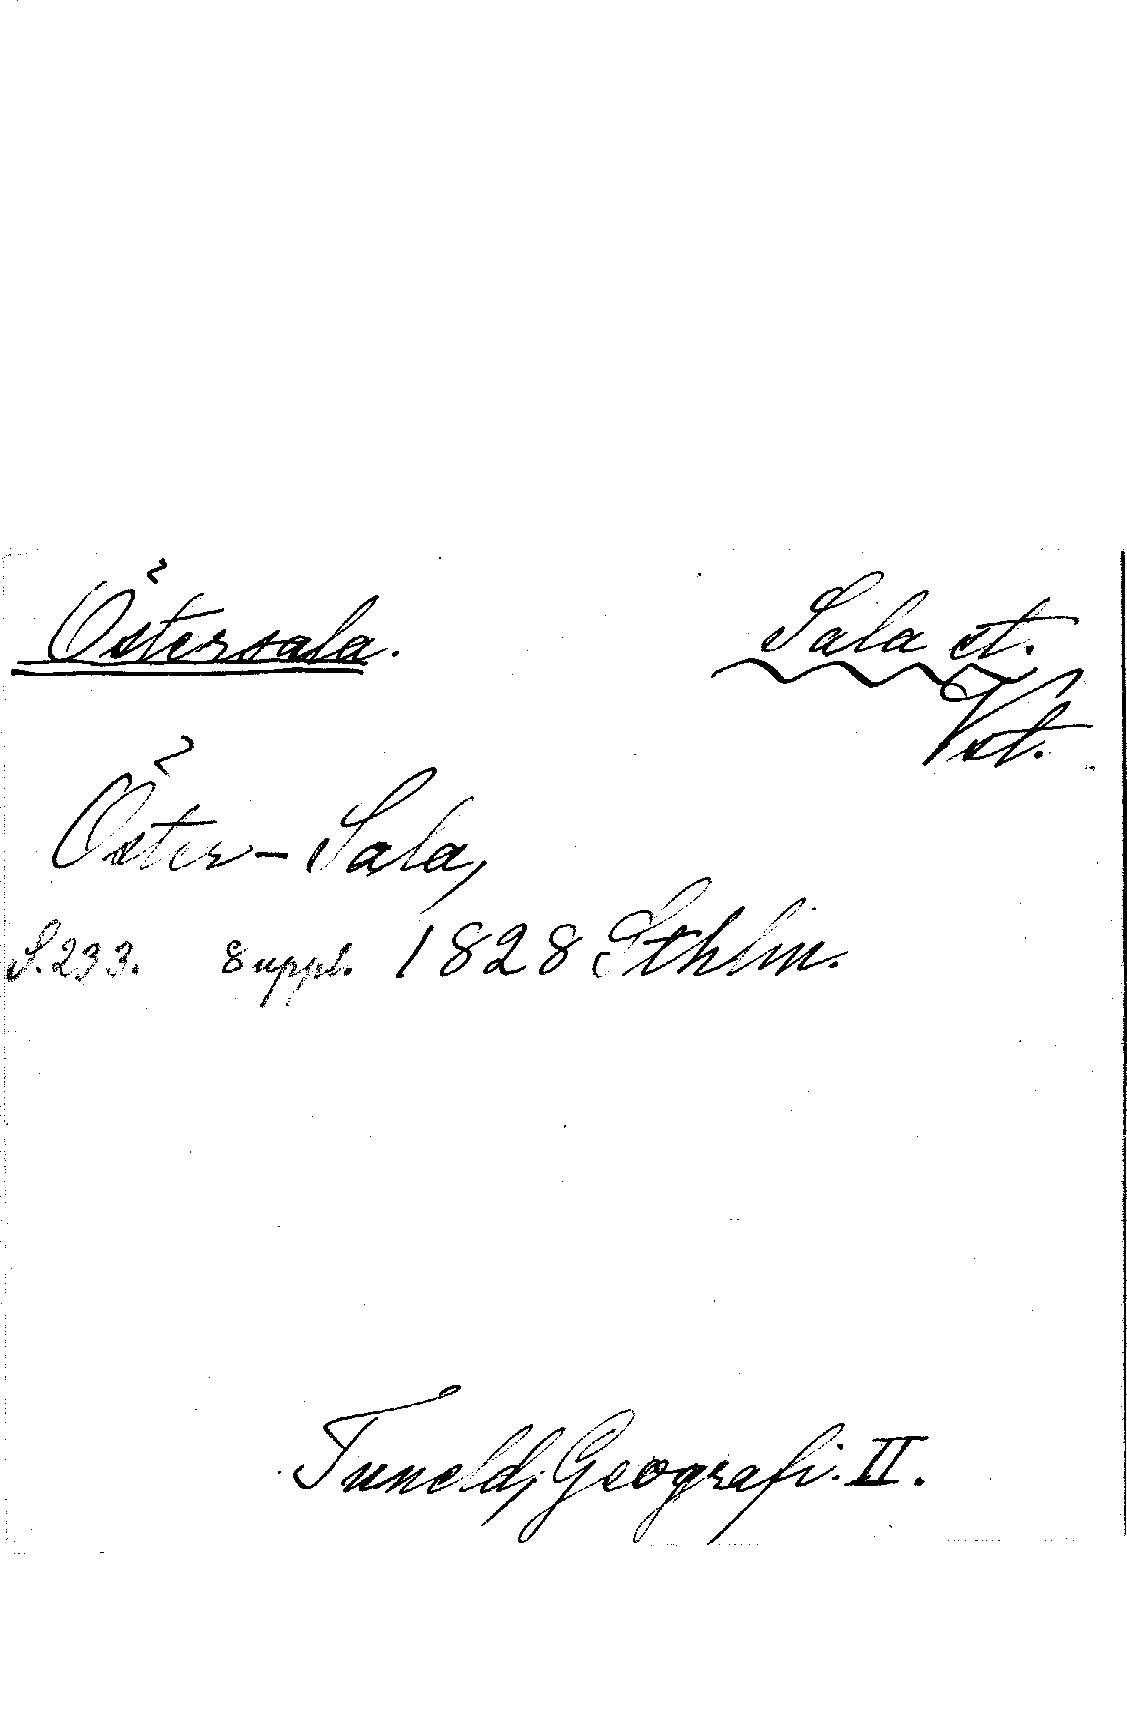 Östersala.
Sala st.
Vst.
Öster-Sala,
S. 233. Suppl. 1828 Sthlm.
Tuneld, Geografi. II.